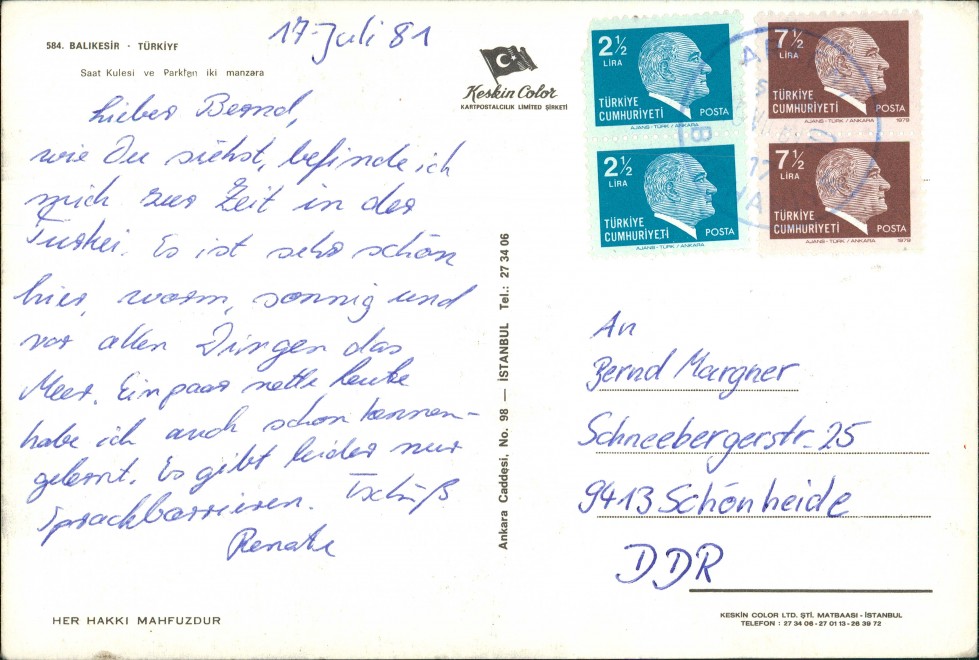 584. BALIKESİR · TÜRKİYE
Saat Kulesi ve Parktan iki manzara
17. Juli 81
Keskin Color
KARTPOSTALCILIK LIMITED ŞİRKETİ
Lieber Bernd,
wie Du siehst, befinde ich
mich zur Zeit in der
Türkei. Es ist sehr schön
hier, warm, sonnig und
vor allen Dingen das
Meer. Ein paar nette Leute
habe ich auch schon kennen-
gelernt. Es gibt leider nur
Sprachbarrieren. Tschüß
Renate
HER HAKKI MAHFUZDUR
Ankara Caddesi, No. 98 — İSTANBUL Tel.: 27 34 06
2½
LİRA
TÜRKİYE
CUMHURİYETİ
POSTA
AJANS-TÜRK / ANKARA
7½
LİRA
TÜRKİYE
CUMHURİYETİ
POSTA
AJANS-TÜRK / ANKARA
1979
2½
LİRA
TÜRKİYE
CUMHURİYETİ
POSTA
AJANS-TÜRK / ANKARA
7½
LİRA
TÜRKİYE
CUMHURİYETİ
POSTA
AJANS-TÜRK / ANKARA
1979
An
Bernd Margner
Schneebergerstr. 25
9413 Schönheide
DDR
KESKİN COLOR LTD. ŞTİ. MATBAASI - İSTANBUL
TELEFON : 27 34 06 - 27 01 13 - 26 39 72